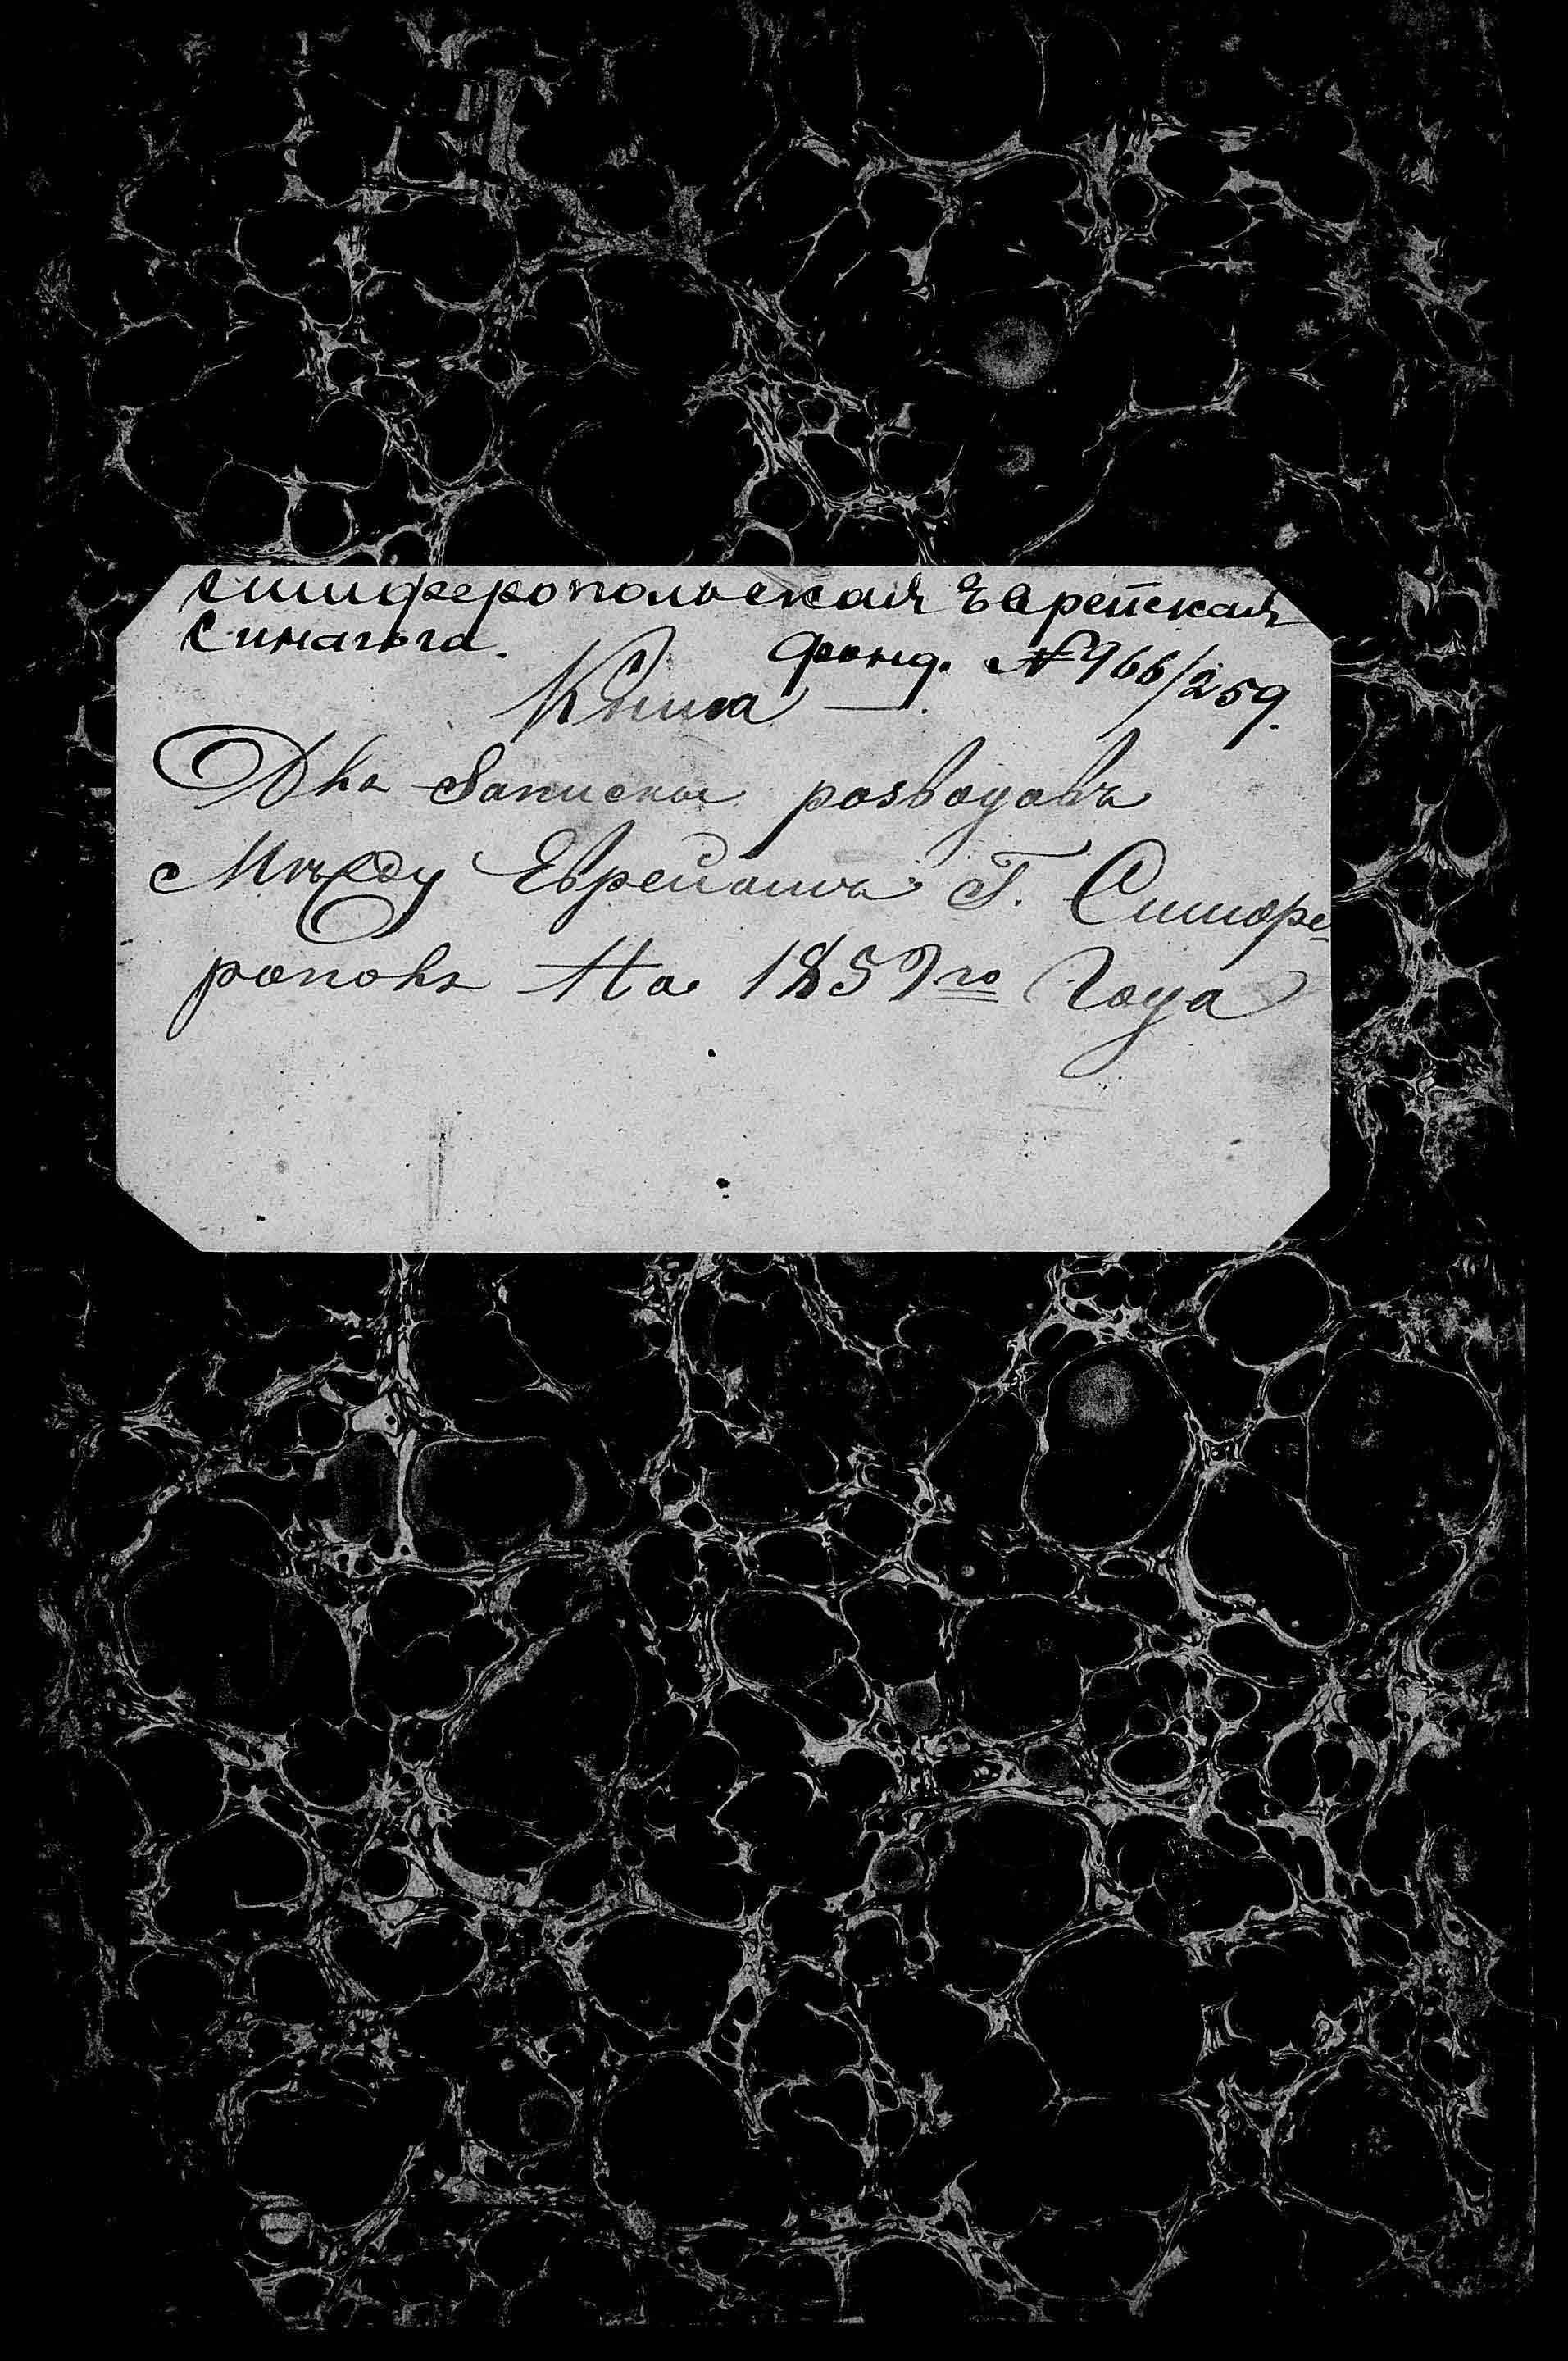 Симферопольская Еврейская
Синагога. Фонд. № 966/259.
Книга
Для Записки розводовъ
Между Евреиами Г. Симфе-
рополя На 1859го Года